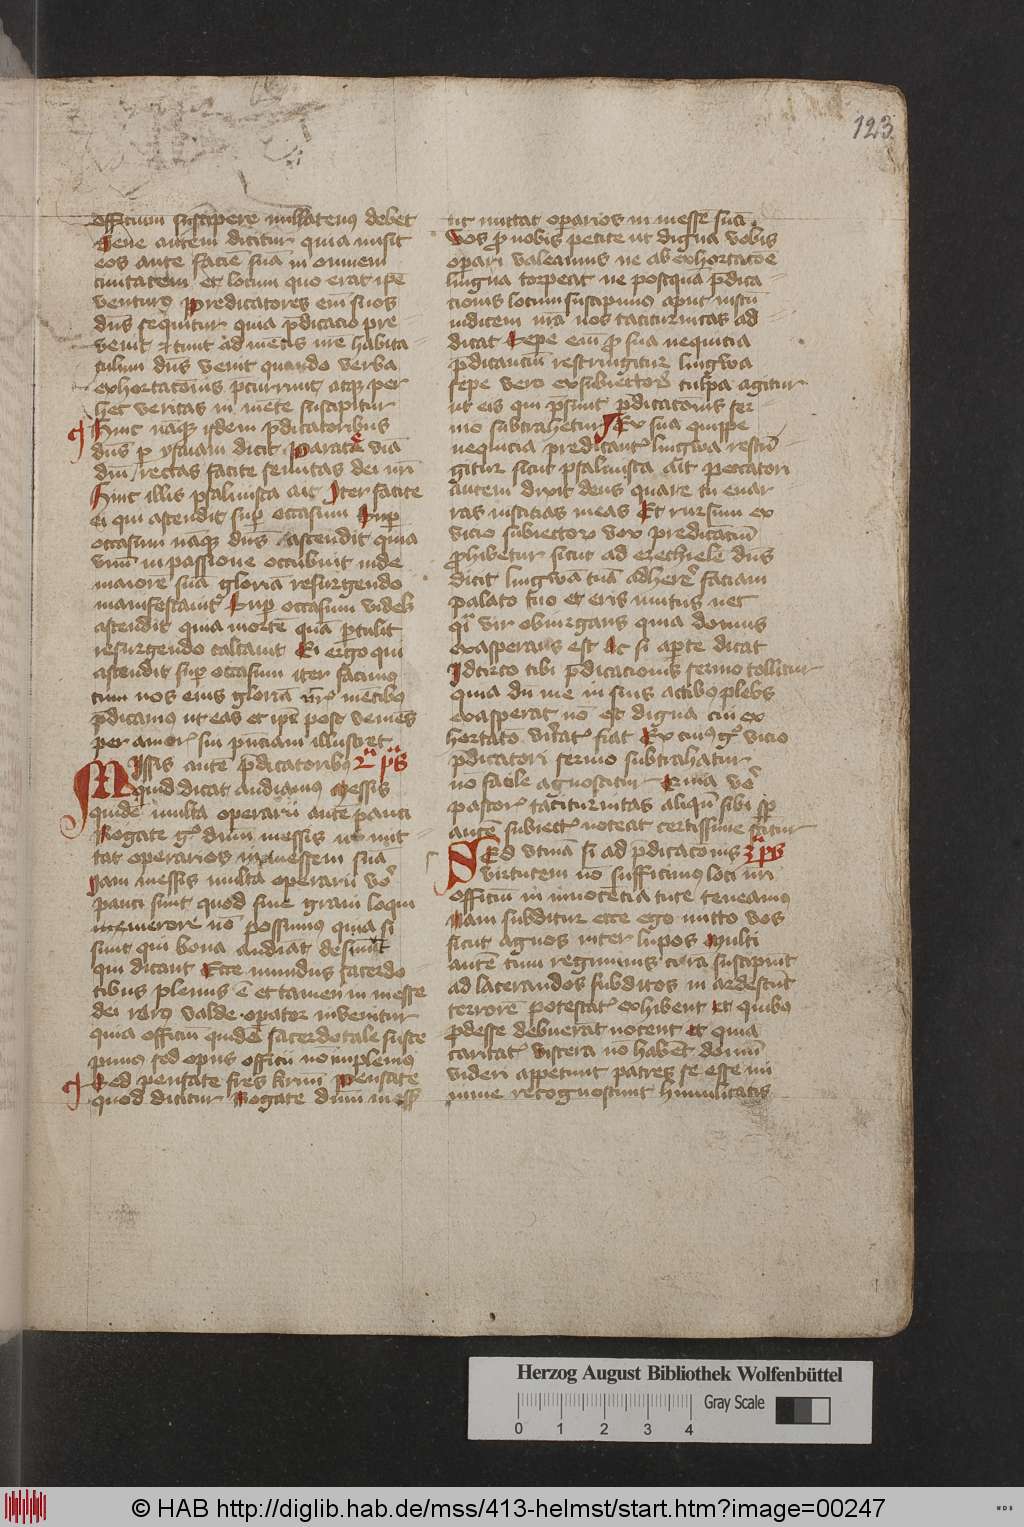 123
officium suscipere nullatenus debet
Bene autem dicitur quia misit
eos ante facie suā in omnem
ciuitatem et locum quo erat ip̄e
venturꝰ Predicatores eni̅ suos
dn̄s sequitur quia p̄dicacio pre
venit et tunc ad mētis nr̄e habita
culum dn̄s venit quando verba
exhortacōnis p̄currunt atqꝫ per
hec veritas in mēte suscipitur
Hinc nāqꝫ ijsdem p̄dicatoribus
dn̄s ꝑ ysaiam dicit Parate viā
dn̄i rectas facite semitas dei nr̄i
Hinc illis psalmista ait Iter facite
ei qui ascendit suꝑ occasum Suꝑ
occasum nāqꝫ dn̄s ascendit quia
vnde in passione occubuit inde
maiorē suā gloriā resurgendo
manifestauit Suꝑ occasum videlꝫ
ascendit quia mortē quā ꝑtulit
resurgendo calcauit Ei ergo qui
ascendit suꝑ occasum iter facimꝰ
cum nos eius gloriā vr̄is mētibꝰ
p̄dicamꝰ ut eas et ip̄e post veniēs
per amorē sui p̄nciam illustret
Missis autē p̄dicatoribꝰ 2ᵃ ps
quid dicat audiamꝰ Messis
quidē multa operarij autē pauci
Rogate gͦ dn̄m messis ut mit
tat operarios in messem suā
Iam messis multa operarij vͦ
pauci sunt quod sine graui loqui
memerore nō possumus quia si
sunt qui bona audiāt desunt
qui dicant Ecce mundus sacerdo
tibus plenus ē et tamen in messe
dei rarꝰ valde opator inuenitur
quia officiū quidē sacerdotale susce
pimus sed opus officij nō implemꝰ
Sed pensate fr̄es kr̄mi Pensate
quod dicitur Rogate dn̄m mess
ut mittat operarios in messē suā
Vos ꝓ nobis petite ut digna vobis
opari valeamus ne ab exhortacōe
lingua torpeat ne postquā p̄dica
cionis locum suscepimꝰ aput iustū
iudicem nr̄a nos taciturnitas ad
dicat Sepe eni̅ ꝓ sua nequicia
p̄dicantiū restringitur lingwa
sepe vero ex subiectorū culpa agitur
ut eis qui p̄sunt p̄dicatōnis ser
mo subtrahetur Ex sua quippe
nequicia predicantiū lingwa restri̅
gitur sicut psalmista ait Peccatori
autem dixit deus quare tu enar
ras iusticias meas Et rursum ex
vicio subiectorū vox predicātiū
ꝓhibetur sicut ad ezechielē dn̄s
dicit lingwā tuā adherē faciam
palato tuo et eris mutus nec
qͥ vir obiurgans quia domus
exasperans est Ac si aꝑte dicat
Idcirco tibi p̄dicacionis sermo tollitur
quia dū me in suis actibꝰ plebs
exasperat nō est digna cui ex
hortatio vitatꝫ fiat Ex cuiꝰ gͦ vicio
p̄dicatori sermo subtrahatur
nō facile agnoscitur Quia vͦ
pastorꝫ taciturnitas aliqn̄ sibi sꝑ
autē subiectꝫ noceat certissime scitur
Sed vtinā si ad p̄dicacōnis 3ᵃ ps
virtutem nō sufficimꝰ loci nr̄i
officiū in innocētia vite teneamꝰ
Nam subditur ecce ego mitto vos
sicut agnos inter lupos Multi
autē cum regiminis cura suscipiūt
ad lacerandos subditos in ardescūt
terrorē potestatꝫ exhibent et quibꝰ
ꝓdesse debuerāt nocent et quia
caritatꝫ viscera nō habēt domini
videri appetunt patres se esse mi
nime recognoscunt humilitatis
Herzog August Bibliothek Wolfenbüttel
Gray Scale
0 1 2 3 4
© HAB http://diglib.hab.de/mss/413-helmst/start.htm?image=00247
WDB